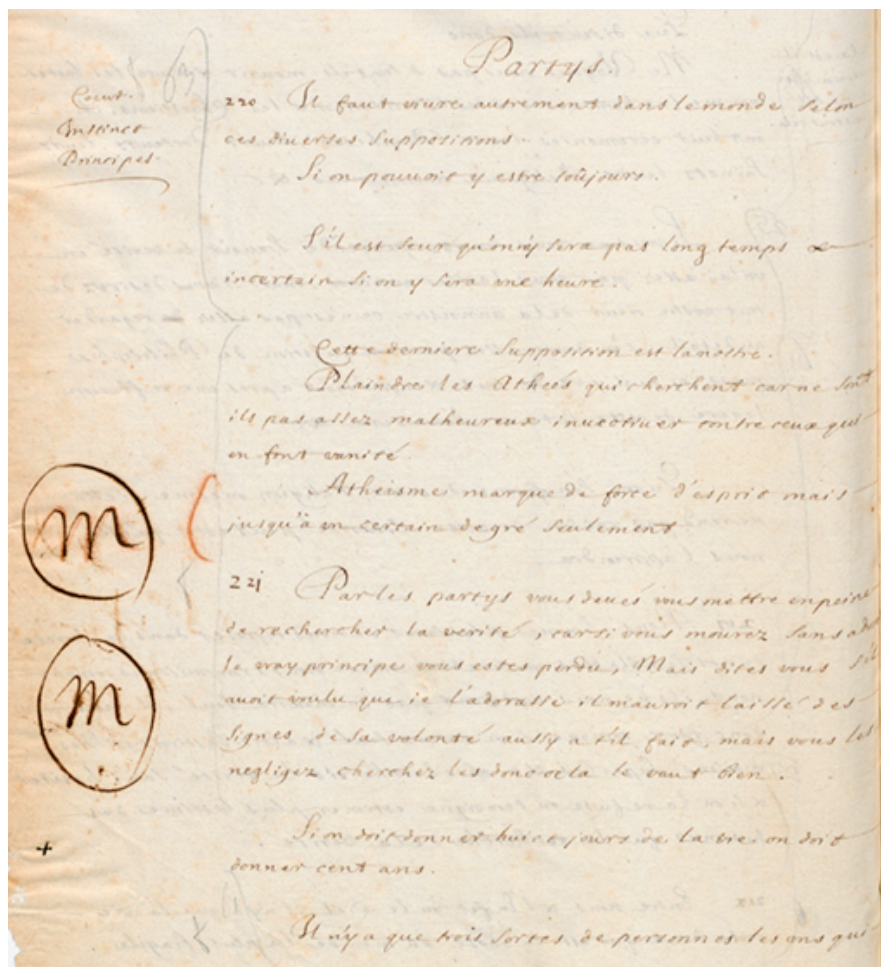 Partys.
Coeur.
Instinct
Principes.
220 Il faut vivre autrement dans le monde selon
ces diverses suppositions.
Si on pouvoit y estre toûjours.
S'il est seur qu'on n'y sera pas long temps &
incertain si on y sera une heure.
Cette derniere supposition est la nostre.
Plaindre les Athées qui cherchent car ne sont
ils pas assez malheureux invectiver contre ceux qui
en font vanité.
Atheisme marque de force d'esprit mais
jusqu'à un certain degré seulement
221 Par les partys vous devés vous mettre en peine
de rechercher la verité, car si vous mourez sans
le vray principe vous estes perdu, Mais dites vous s'il
avoit voulu que ie l'adorasse il m'auroit laissé des
signes de sa volonté aussy a t'il fait, mais vous les
negligez cherchez les donc cela le vaut bien.
Si on doit donner huict jours de la vie on doit
donner cent ans.
Il n'y a que trois sortes de personnes les uns qui
M
M
+